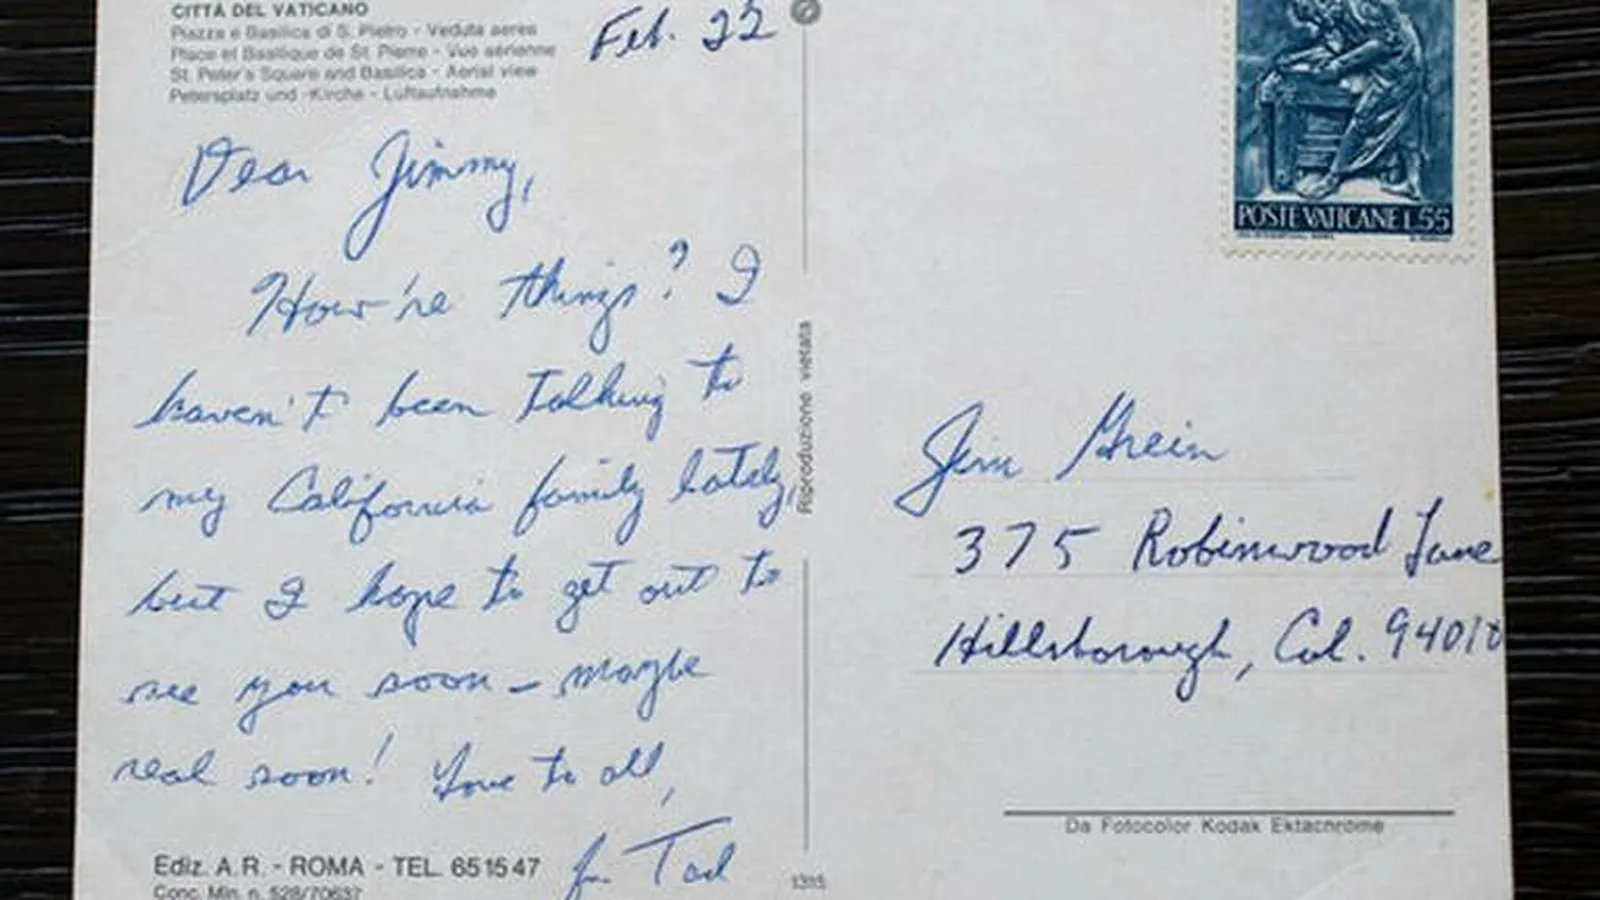 CITTÀ DEL VATICANO
Piazza e Basilica di S. Pietro - Veduta aerea
Place et Basilique de St. Pierre - Vue aérienne
St. Peter's Square and Basilica - Aerial view
Petersplatz und -Kirche - Luftaufnahme
Feb. 22
Dear Jimmy,
How're things? I
haven't been talking to
my California family lately,
but I hope to get out to
see you soon - maybe
real soon! Love to all,
Ediz. A.R. - ROMA - TEL. 651547
Conc. Min. n. 528/70637
Riproduzione vietata
1315
POSTE VATICANE L.55
Jim Grein
375 Robinwood Lane
Hillsborough, Cal. 94010
Da Fotocolor Kodak Ektachrome